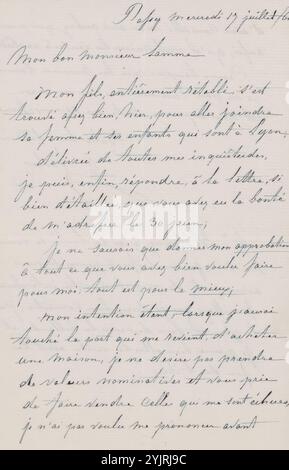 Passy mercredi 17 juillet /6
Mon bon monsieur Lamme
Mon fils, entièrement rétabli s'est
trouvé assez bien, hier, pour aller joindre
sa femme et ses enfants qui sont à Lyon,
délivrée de toutes mes inquiétudes,
je puis, enfin, répondre, à la lettre, si
bien détaillée que vous avez eu la bonté
de m'adresser le 30 juin;
je ne saurais que donner mon approbation
à tout ce que vous avez bien voulu faire
pour moi. tout est pour le mieux;
mon intention étant, lorsque j'aurai
touché la part qui me revient, d'acheter
une maison, je ne désire pas prendre
de valeurs nominatives et vous prie
de faire vendre celles qui me sont échues,
je n'ai pas voulu me prononcer avant
alamy
Image ID: 2YJRJ9C
www.alamy.com